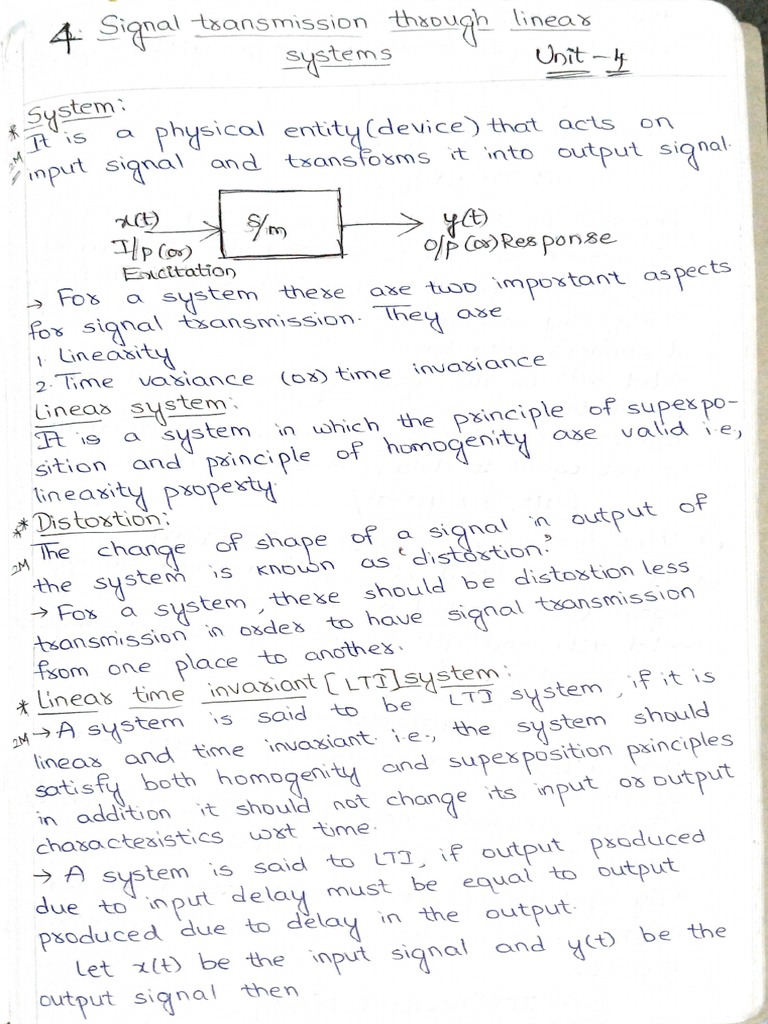 4. Signal transmission through linear
systems
Unit - 4
System:
* It is a physical entity (device) that acts on
2M input signal and transforms it into output signal.
x(t)
I/p (or)
Excitation
S/m
y(t)
O/p (or) Response
→ For a system there are two important aspects
for signal transmission. They are
1. Linearity
2. Time variance (or) time invariance
Linear system:
It is a system in which the principle of superpo-
sition and principle of homogenity are valid i.e,
linearity property.
* Distortion:
2M The change of shape of a signal in output of
the system is known as "distortion."
→ For a system, there should be distortion less
transmission in order to have signal transmission
from one place to another.
* Linear time invariant [LTI] system:
2M → A system is said to be LTI system, if it is
linear and time invariant. i.e., the system should
satisfy both homogenity and superposition principles
in addition it should not change its input or output
characteristics wrt time.
→ A system is said to LTI, if output produced
due to input delay must be equal to output
produced due to delay in the output.
Let x(t) be the input signal and y(t) be the
output signal then